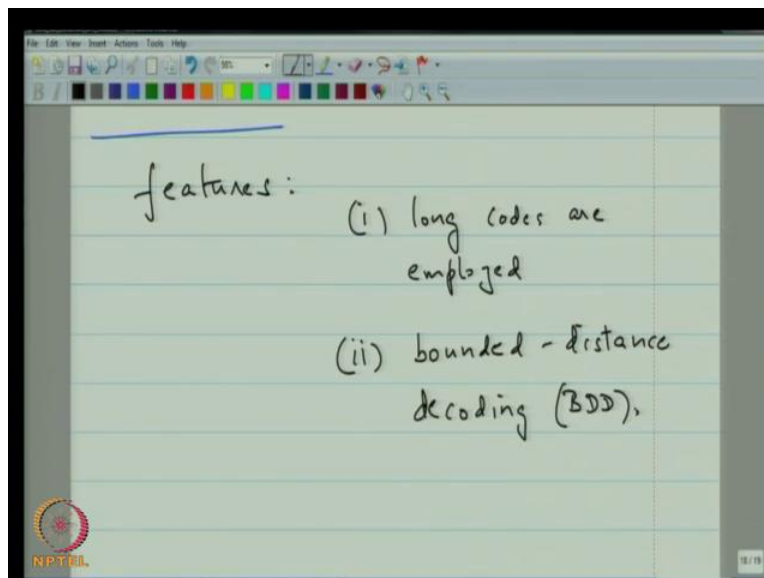 File Edit View Insert Actions Tools Help
98%
B I
features :
(i) long codes are
employed
(ii) bounded - distance
decoding (BDD).
NPTEL
18 / 19